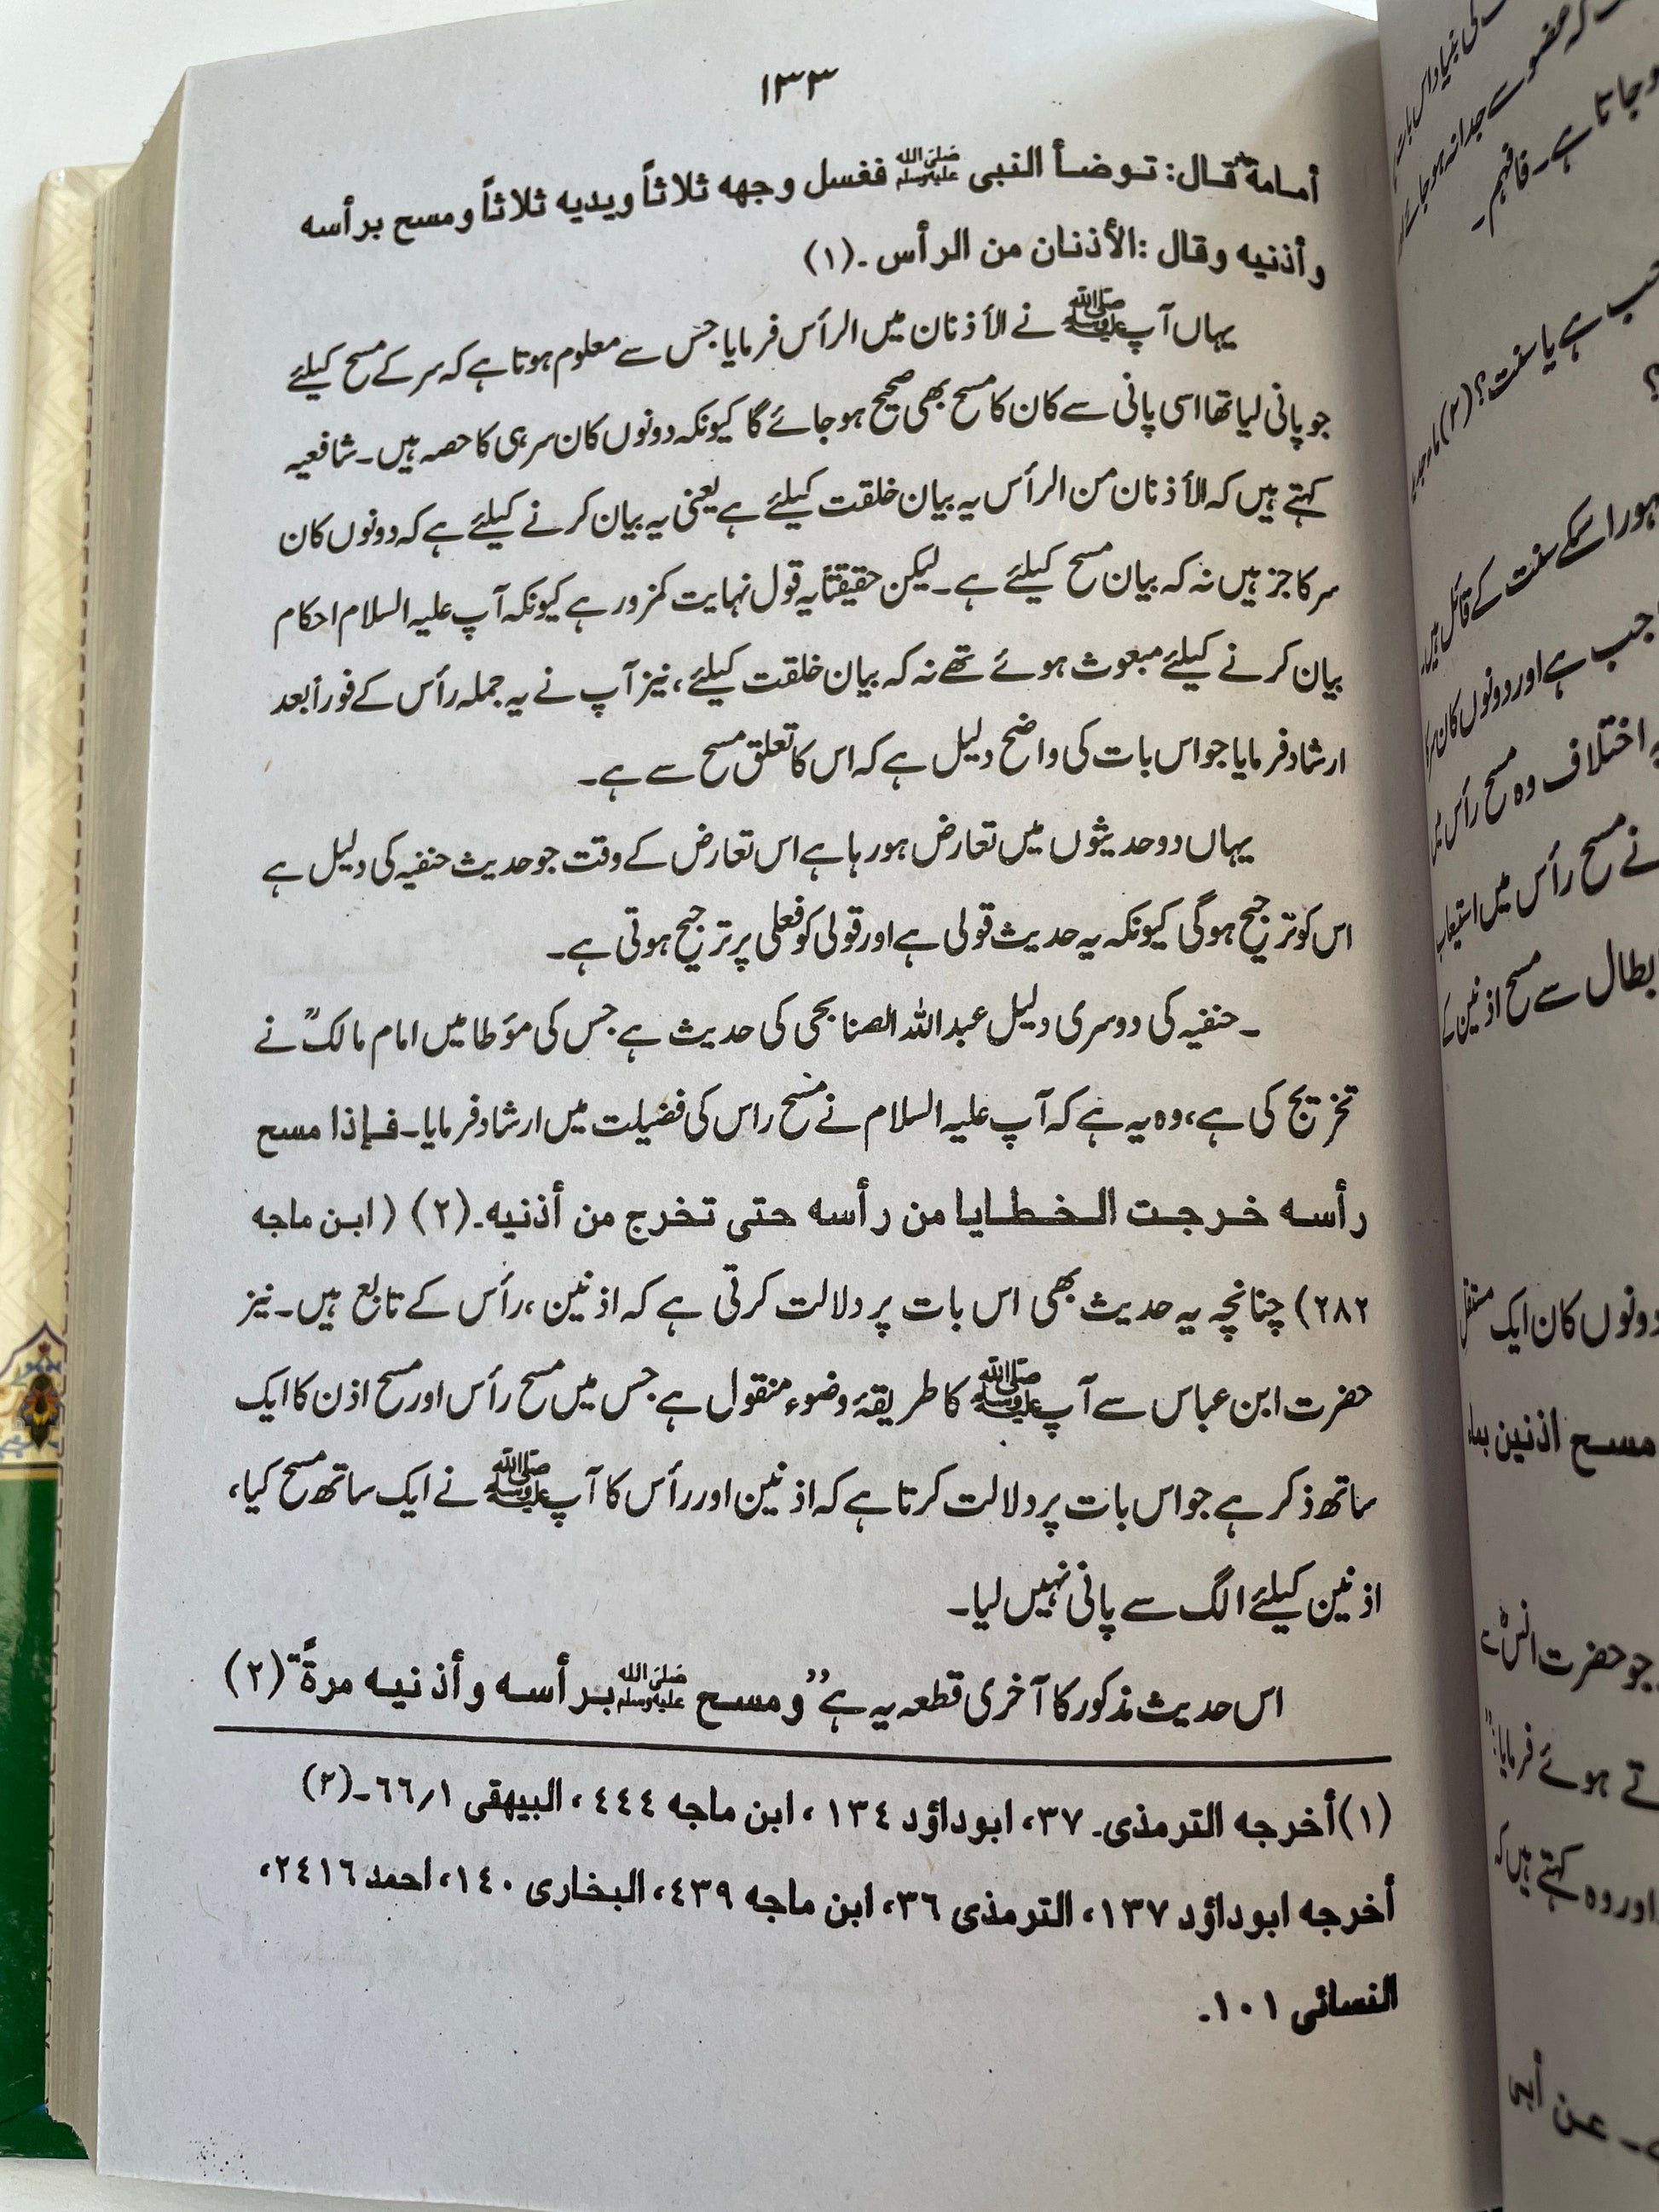 ۱۳۳
أمامة قال: توضأ النبی ﷺ فغسل وجهه ثلاثاً ویدیه ثلاثاً ومسح برأسه
وأذنیه وقال :الأذنان من الرأس ۔(۱)
یہاں آپ ﷺ نے الأذنان میں الرأس فرمایا جس سے معلوم ہوتا ہے کہ سر کے مسح کیلئے
جو پانی لیا تھا اسی پانی سے کان کا مسح بھی صحیح ہو جائے گا کیونکہ دونوں کان سر ہی کا حصہ ہیں۔ شافعیہ
کہتے ہیں کہ الأذنان من الرأس یہ بیان خلقت کیلئے ہے یعنی یہ بیان کرنے کیلئے ہے کہ دونوں کان
سر کا جز ہیں نہ کہ بیان مسح کیلئے ہے۔ لیکن حقیقتاً یہ قول نہایت کمزور ہے کیونکہ آپ علیہ السلام احکام
بیان کرنے کیلئے مبعوث ہوئے تھے نہ کہ بیان خلقت کیلئے، نیز آپ نے یہ جملہ رأس کے فوراً بعد
ارشاد فرمایا جو اس بات کی واضح دلیل ہے کہ اس کا تعلق مسح سے ہے۔
یہاں دو حدیثوں میں تعارض ہو رہا ہے اس تعارض کے وقت جو حدیث حنفیہ کی دلیل ہے
اس کو ترجیح ہوگی کیونکہ یہ حدیث قولی ہے اور قولی کو فعلی پر ترجیح ہوتی ہے۔
۔حنفیہ کی دوسری دلیل عبداللہ الصنابحی کی حدیث ہے جس کی مؤطا میں امام مالکؒ نے
تخریج کی ہے، وہ یہ ہے کہ آپ علیہ السلام نے مسح راس کی فضیلت میں ارشاد فرمایا۔ فإذا مسح
رأسه خرجت الخطایا من رأسه حتی تخرج من أذنیه۔(۲) (ابن ماجه
۲۸۲) چنانچہ یہ حدیث بھی اس بات پر دلالت کرتی ہے کہ اذنین، رأس کے تابع ہیں۔ نیز
حضرت ابن عباس سے آپ ﷺ کا طریقۂ وضوء منقول ہے جس میں مسح رأس اور مسح اذن کا ایک
ساتھ ذکر ہے جو اس بات پر دلالت کرتا ہے کہ اذنین اور رأس کا آپ ﷺ نے ایک ساتھ مسح کیا،
اذنین کیلئے الگ سے پانی نہیں لیا۔
اس حدیث مذکور کا آخری قطعہ یہ ہے ”ومسح ﷺ برأسه وأذنیه مرةً“ (۲)
(۱)أخرجه الترمذی۔ ۳۷، ابوداؤد ۱۳٤ ، ابن ماجه ٤٤٤ ، البیهقی ۱؍٦٦۔(۲)
أخرجه ابوداؤد ۱۳۷، الترمذی ۳٦، ابن ماجه ٤۳۹، البخاری ۱٤۰، احمد ۲٤۱٦،
النسائی ۱۰۱۔
وجاتا ہے۔ فافہم۔
حب ہے یا سنت؟ (۲)
؟
جب ہے اور دونوں کان
اختلاف وہ مسح رأس
نے مسح رأس میں استیعاب
ابطال سے مسح اذنین کے
دونوں کان ایک مستقل
مسح اذنین بماء
جو حضرت انسؓ
تے ہوئے فرمایا:
اور وہ کہتے ہیں کہ
۔ عن أبی